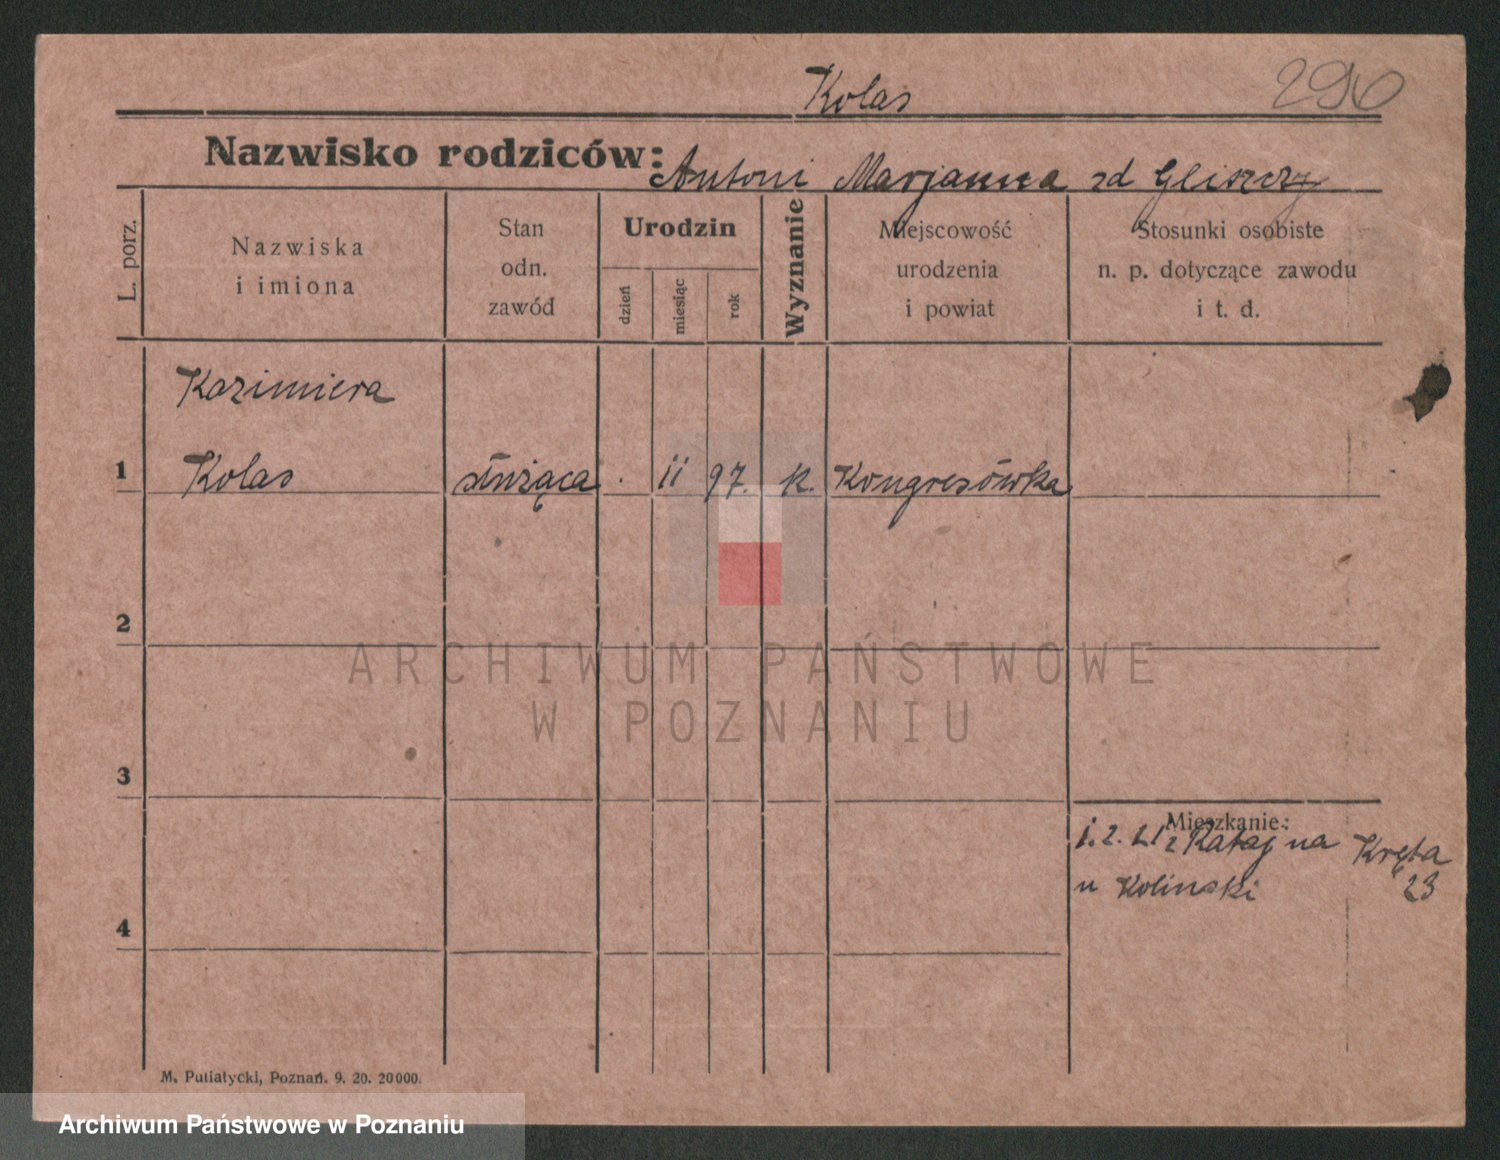 Kolas 290
Nazwisko rodziców: Antoni Marjanna zd Gliszczy
L. porz.
Nazwiska
i imiona
Stan
odn.
zawód
Urodzin
dzień
miesiąc
rok
Wyznanie
Miejscowość
urodzenia
i powiat
Stosunki osobiste
n. p. dotyczące zawodu
i t. d.
Kazimiera
1 Kolas służąca . ii 97. k. Kongresówka
2
3
ARCHIWUM PAŃSTWOWE
W POZNANIU
Mieszkanie:
1.2.21 z Rataj na Kręta
u Kolinski 23
4
M. Putiatycki, Poznań. 9. 20. 20000.
Archiwum Państwowe w Poznaniu